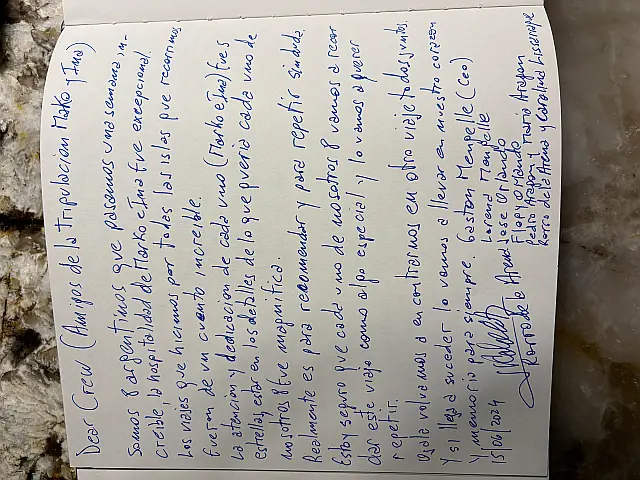 Dear Crew (Amigos de la tripulacion Marko y Ima)
Somos 8 argentinos que pasamos una semana in-
creible la hospitalidad de Marko e Ima fue excepcional.
Los viajes que hicimos por todas las islas que recorrimos
fueron de un cuento increible.
La atencion y dedicacion de cada uno (Marko e Ima) fue 5
estrellas, estar en los detalles de lo que queria cada uno de
nosotros 8 fue magnifica.
Realmente es para recomendar y para repetir sin duda.
Estoy seguro que cada uno de nosotros 8 vamos a recor
dar este viaje como algo especial y lo vamos a querer
repetir.
Ojala volvamos a encontrarnos en otro viaje todos juntos.
Y si llega a suceder lo vamos a llevar en nuestro corazon
y memoria para siempre. Gaston Menpelle (Ceo)
Lorena Menpelle
Jose Orlando
Flopy Orlando
15/06/2024 Rorro de la Arena
Pedro Aragon y Maria Aragon
Rorro de la Arena y Carolina